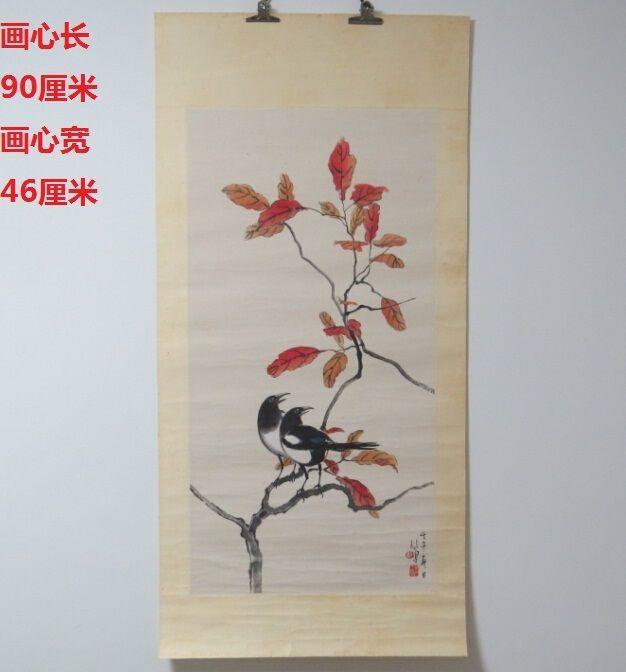 画心长
90厘米
画心宽
46厘米